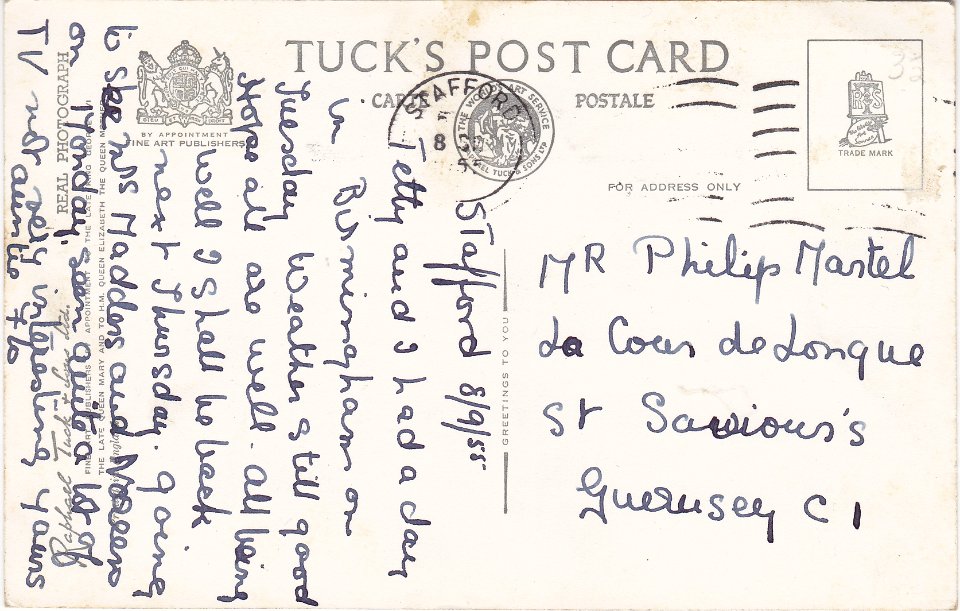 TUCK'S POST CARD
CARTE POSTALE
BY APPOINTMENT
FINE ART PUBLISHERS
REAL PHOTOGRAPH
Raphael Tuck & Sons Ltd.
FINE ART PUBLISHERS BY APPOINTMENT TO THE LATE KING GEORGE VI
THE LATE QUEEN MARY AND TO H.M. QUEEN ELIZABETH THE QUEEN MOTHER
England
STAFFORD
8
THE WORLD ART SERVICE
RAPHAEL TUCK & SONS LTD
R S
The World's Art Service
TRADE MARK
33
FOR ADDRESS ONLY
GREETINGS TO YOU
Stafford 8/9/55
Tetty and I had a day
in Birmingham on
Tuesday Weather still good
Hope all are well. All being
well I shall be back
next Thursday. going
to see Mrs Madders and Noreen
on Monday. saw quite a lot of
TV not very interesting yours
auntie Flo
MR Philip Martel
La Cour de Longue
St Saviour's
Guernsey C I